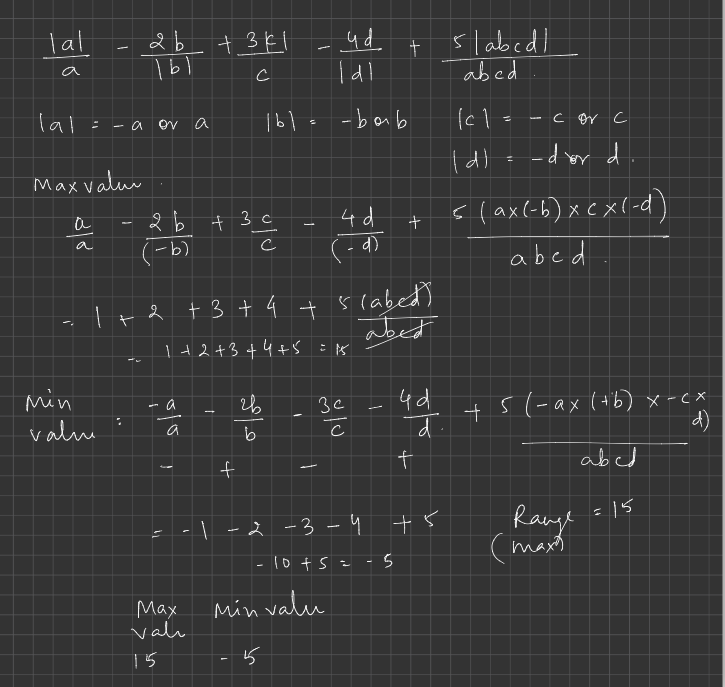 |a|/a - 2b/|b| + 3|c|/c - 4d/|d| + 5|abcd|/abcd.
|a| = -a or a |b| = -b or b |c| = -c or c
|d| = -d or d.
Max value.
a/a - 2b/(-b) + 3c/c - 4d/(-d) + 5(ax(-b)xcx(-d)/abcd.
= 1 + 2 + 3 + 4 + 5(abcd)/abcd
= 1+2+3+4+5 = 15
Min value = -a/a - 2b/b - 3c/c - 4d/d. + 5(-ax(+b)x-cxd)/abcd
- + - +
= -1 -2 -3 -4 +5 Range = 15
(max)
-10+5 = -5
Max value Min value
15 -5